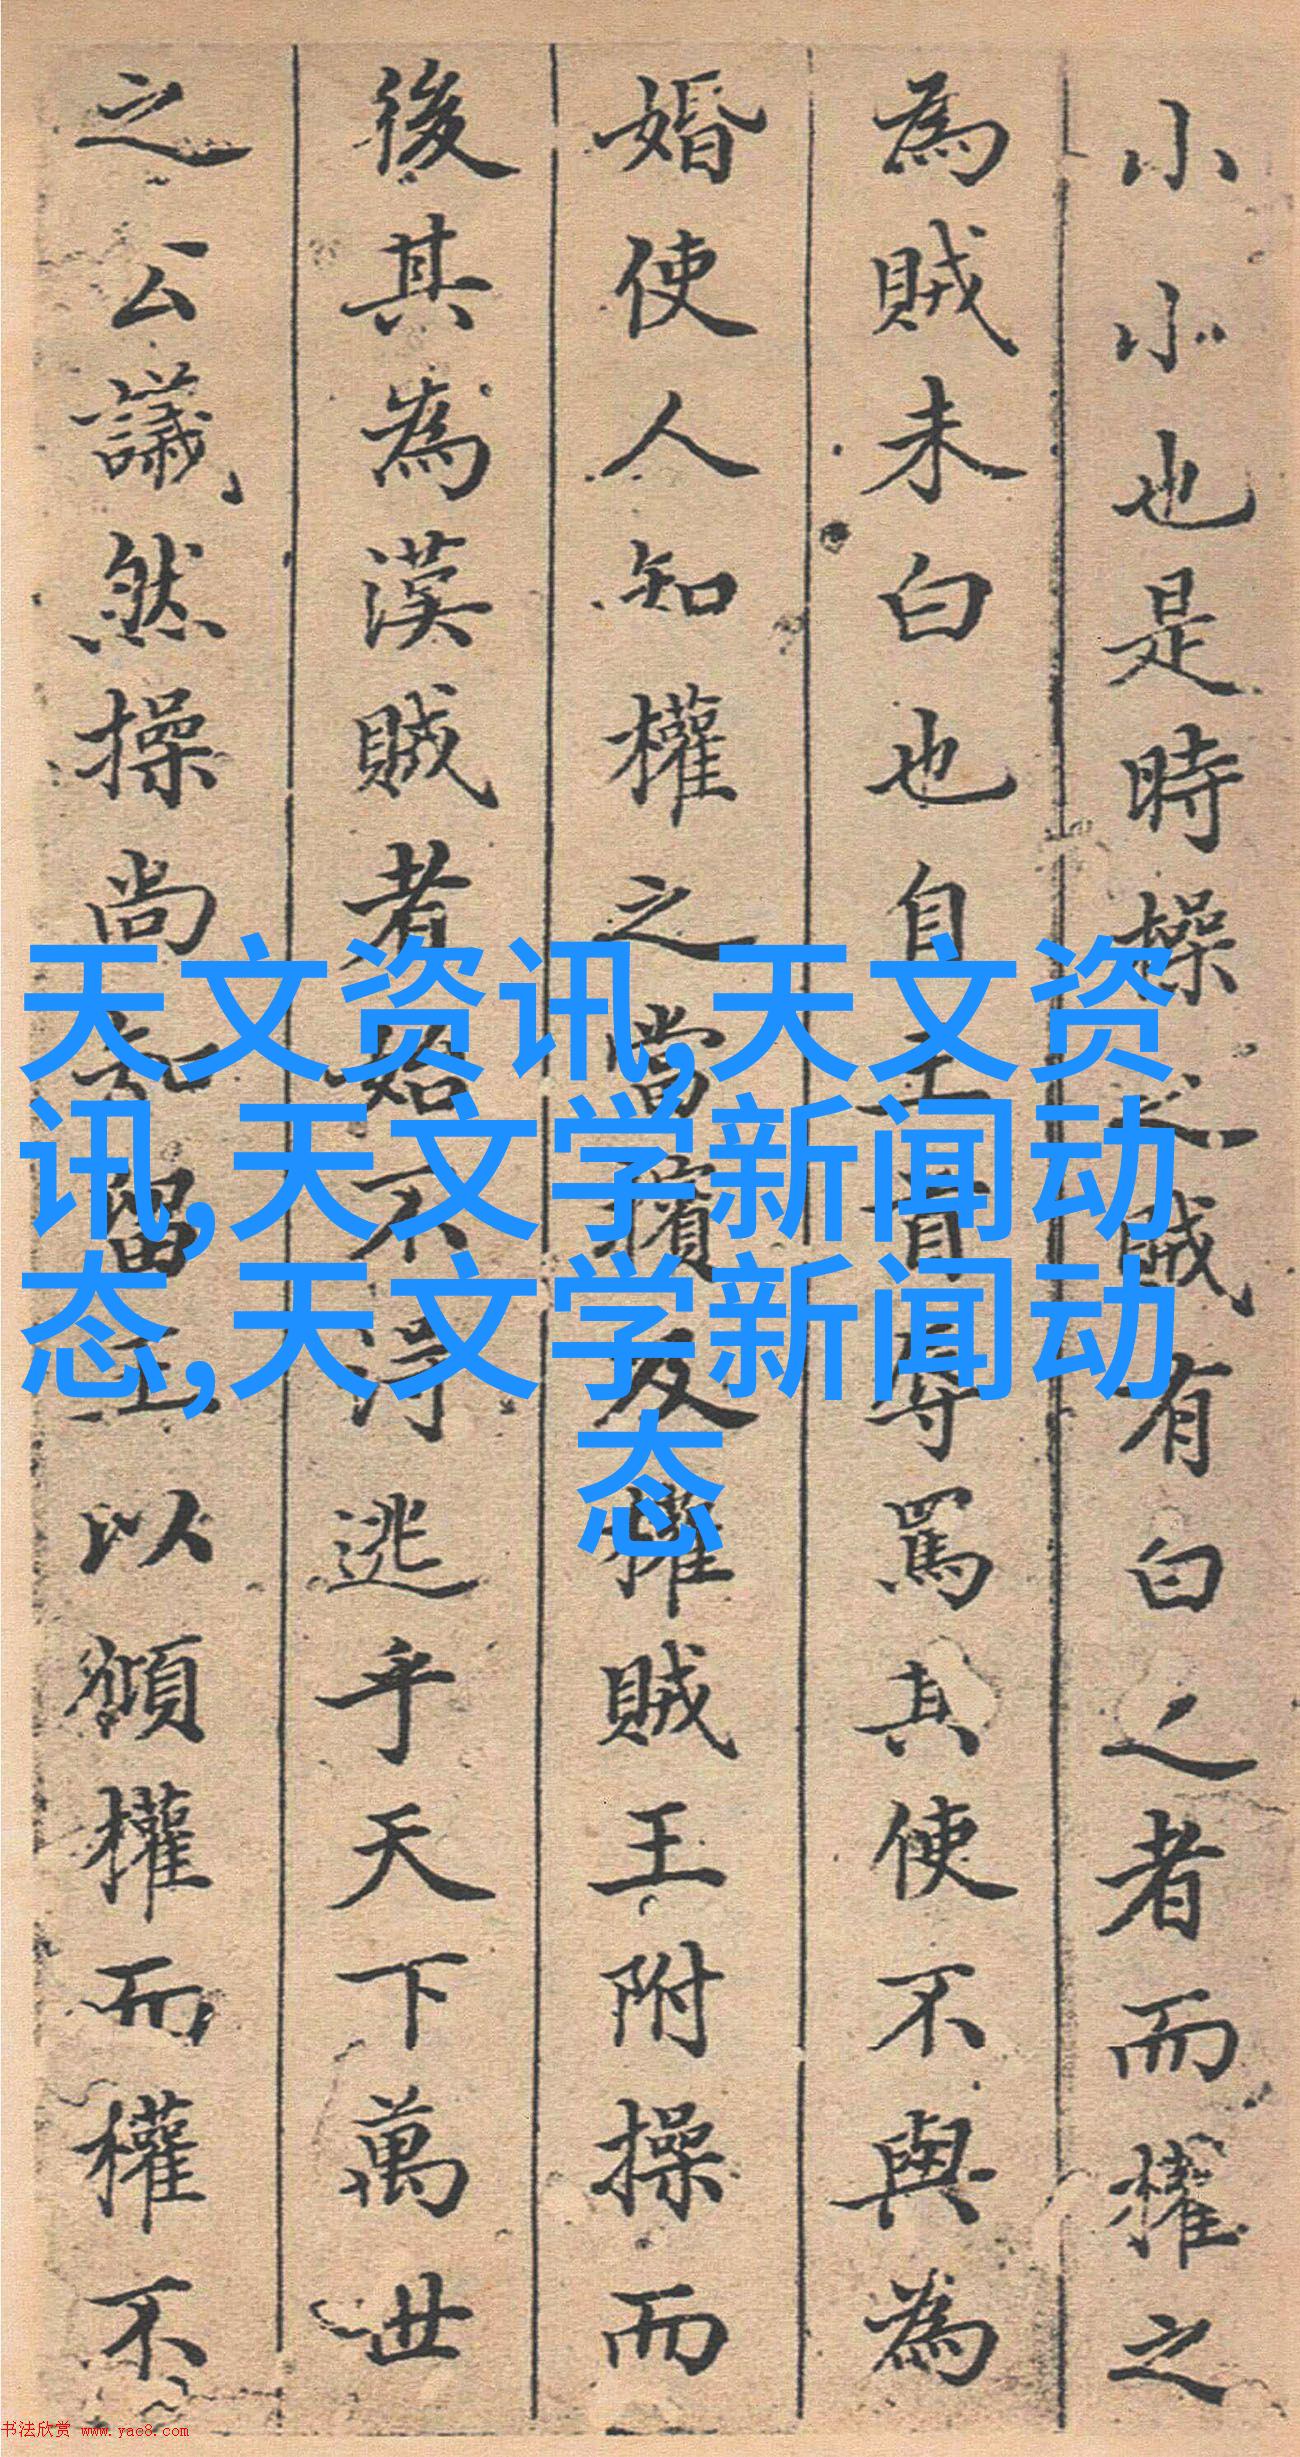 小小也是時操之賊有白之者而權之
為賊未白也自王辱罵其使不與為
婚使人知權之當擯及權賊王附操而
後其為漢賊者始不得逃乎天下萬世
之公議然操尚知留王以權而權不
天文资讯,天文资
讯,天文学新闻动
态,天文学新闻动
态
书法欣赏 www.yac8.com